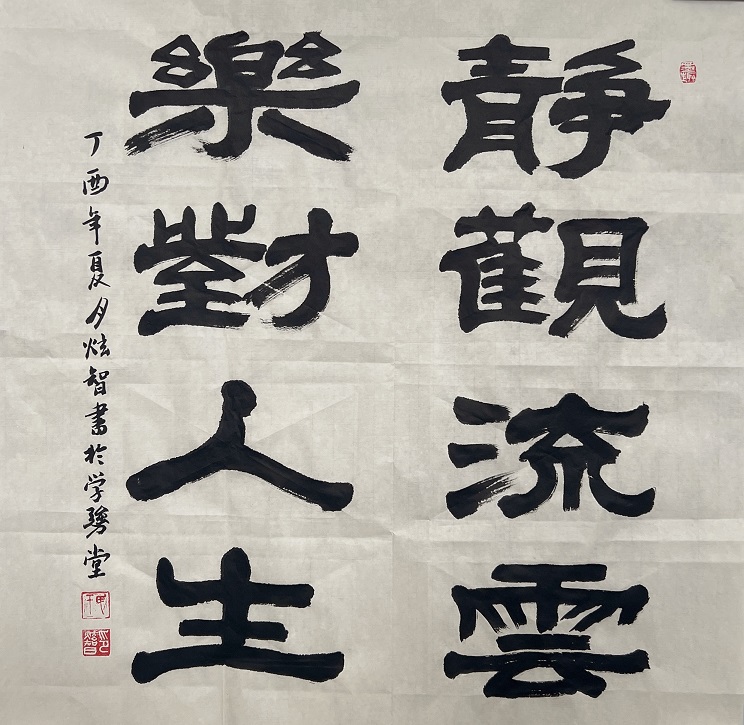 靜觀流雲
樂對人生
丁酉年夏月炫智書於学勇堂